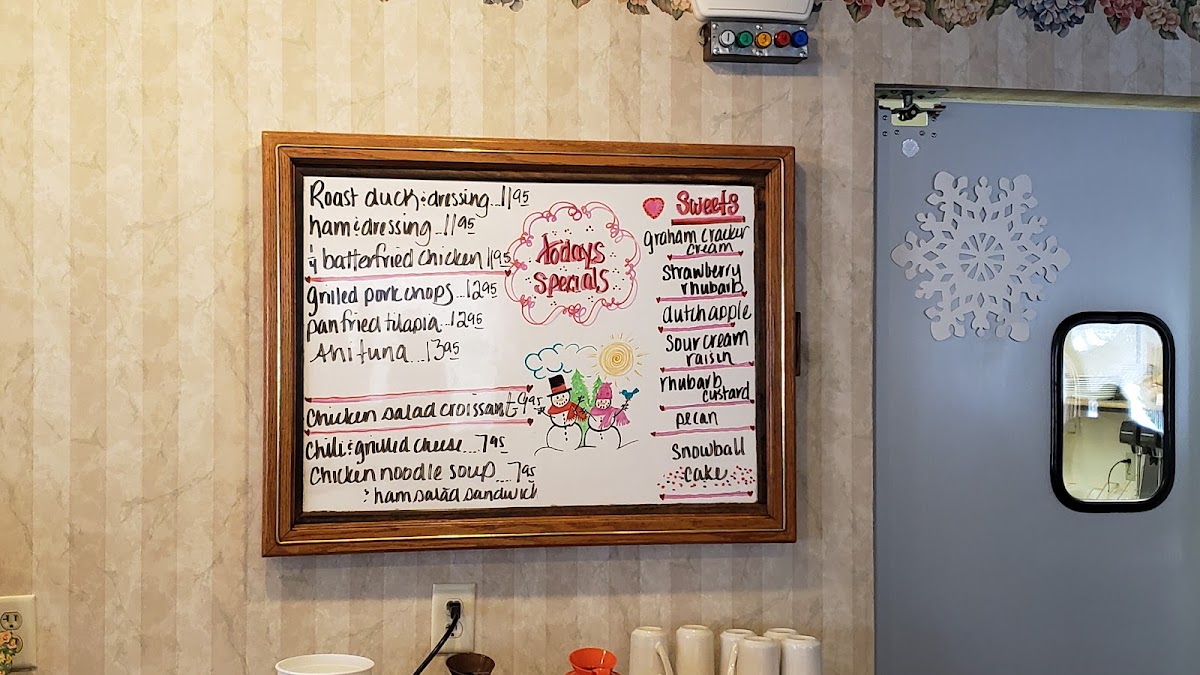 Roast duck & dressing...11.95
ham & dressing...11.95
1/4 batterfried chicken 11.95
grilled pork chops...12.95
pan fried tilapia...12.95
Ahi tuna...13.95
Chicken salad croissant 9.95
Chili & grilled cheese...7.95
Chicken noodle soup...7.95
& ham salad sandwich
todays
specials
Sweets
graham cracker
cream
strawberry
rhubarb
dutch apple
sour cream
raisin
rhubarb
custard
pecan
snowball
cake